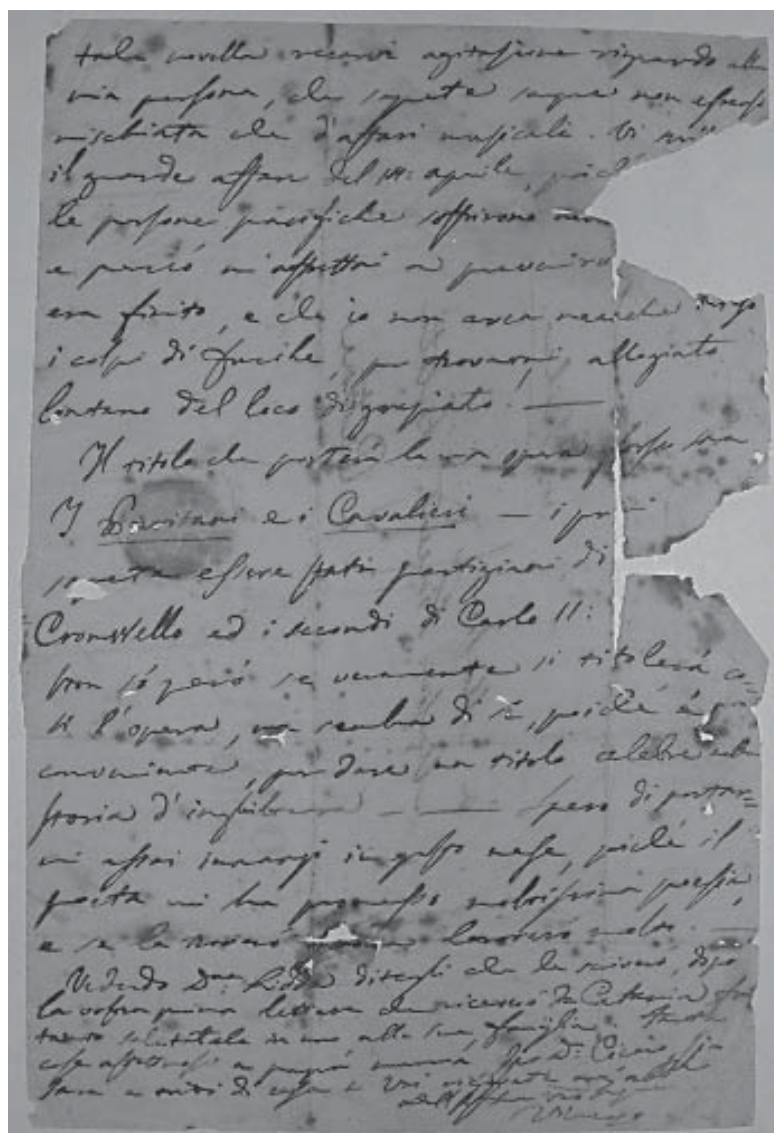 tale novella recarvi agitazione riguardo alla
mia persona, che sapete sempre non essersi
mischiata che d'affari musicali. Vi
il grande affare del 14: aprile,
le persone pacifiche soffrirono
e perciò m'affrettai a prevenirvi
era finito, e che io non avea neanche inteso
i colpi di fucile, per trovarmi alloggiato
lontano del loco disgraziato. —
Il titolo che porterà la mia opera forse sarà
I Puritani e i Cavalieri — i primi
sapete essere stati partigiani di
Cromvello ed i secondi di Carlo II:
non sò però se veramente si titolerà co-
sì l'opera, ma sembra di sì, poiché è
conveniente, per dare un titolo celebre nella
storia d'inghilterra — — spero di portar=
mi assai innanzi in questo mese, poiché il
poeta mi ha promesso moltissima poesia,
e se la lavorerò molto. —
Vedendo D.na Lidda ditegli che le scriverò, dopo
la vostra prima lettera che riceverò da Catania
tanto salutatela in uno alla sua famiglia. Tante
cose affettuose a papà mamma,
a tutti di casa e Voi